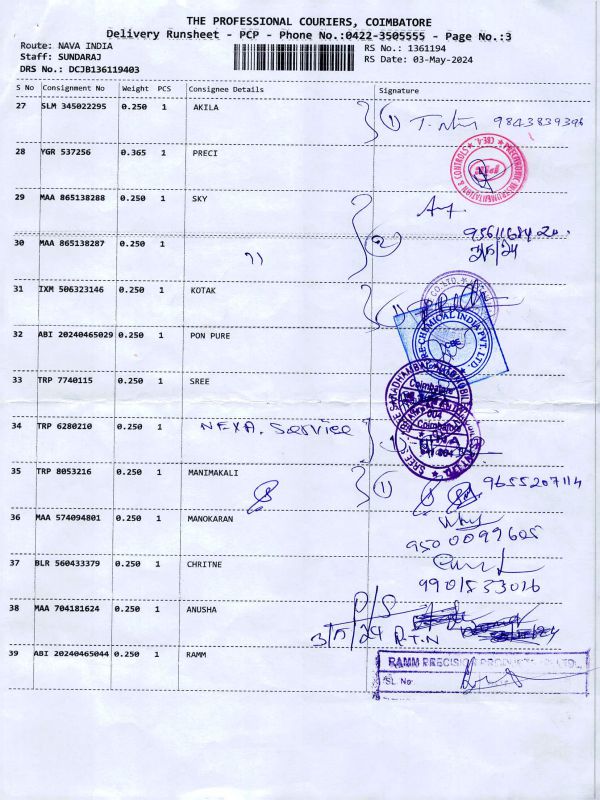 THE PROFESSIONAL COURIERS, COIMBATORE
Delivery Runsheet - PCP - Phone No.:0422-3505555 - Page No.:3
Route: NAVA INDIA
RS No.: 1361194
Staff: SUNDARAJ
RS Date: 03-May-2024
DRS No.: DCJB136119403
S No Consignment No Weight PCS Consignee Details Signature
27 SLM 345022295 0.250 1 AKILA
1 9843839396
28 YGR 537256 0.365 1 PRECI
29 MAA 865138288 0.250 1 SKY
30 MAA 865138287 0.250 1 11
2
3/5/24
31 IXM 506323146 0.250 1 KOTAK
32 ABI 20240465029 0.250 1 PON PURE
33 TRP 7740115 0.250 1 SREE
Coimbatore
34 TRP 6280210 0.250 1 NEXA. Service
35 TRP 8053216 0.250 1 MANIMAKALI
1 9655207114
36 MAA 574094801 0.250 1 MANOKARAN
9500099605
37 BLR 560433379 0.250 1 CHRITNE
38 MAA 704181624 0.250 1 ANUSHA
3/5/24 R.T.N
39 ABI 20240465044 0.250 1 RAMM
RAMM PRECISION
SL. No